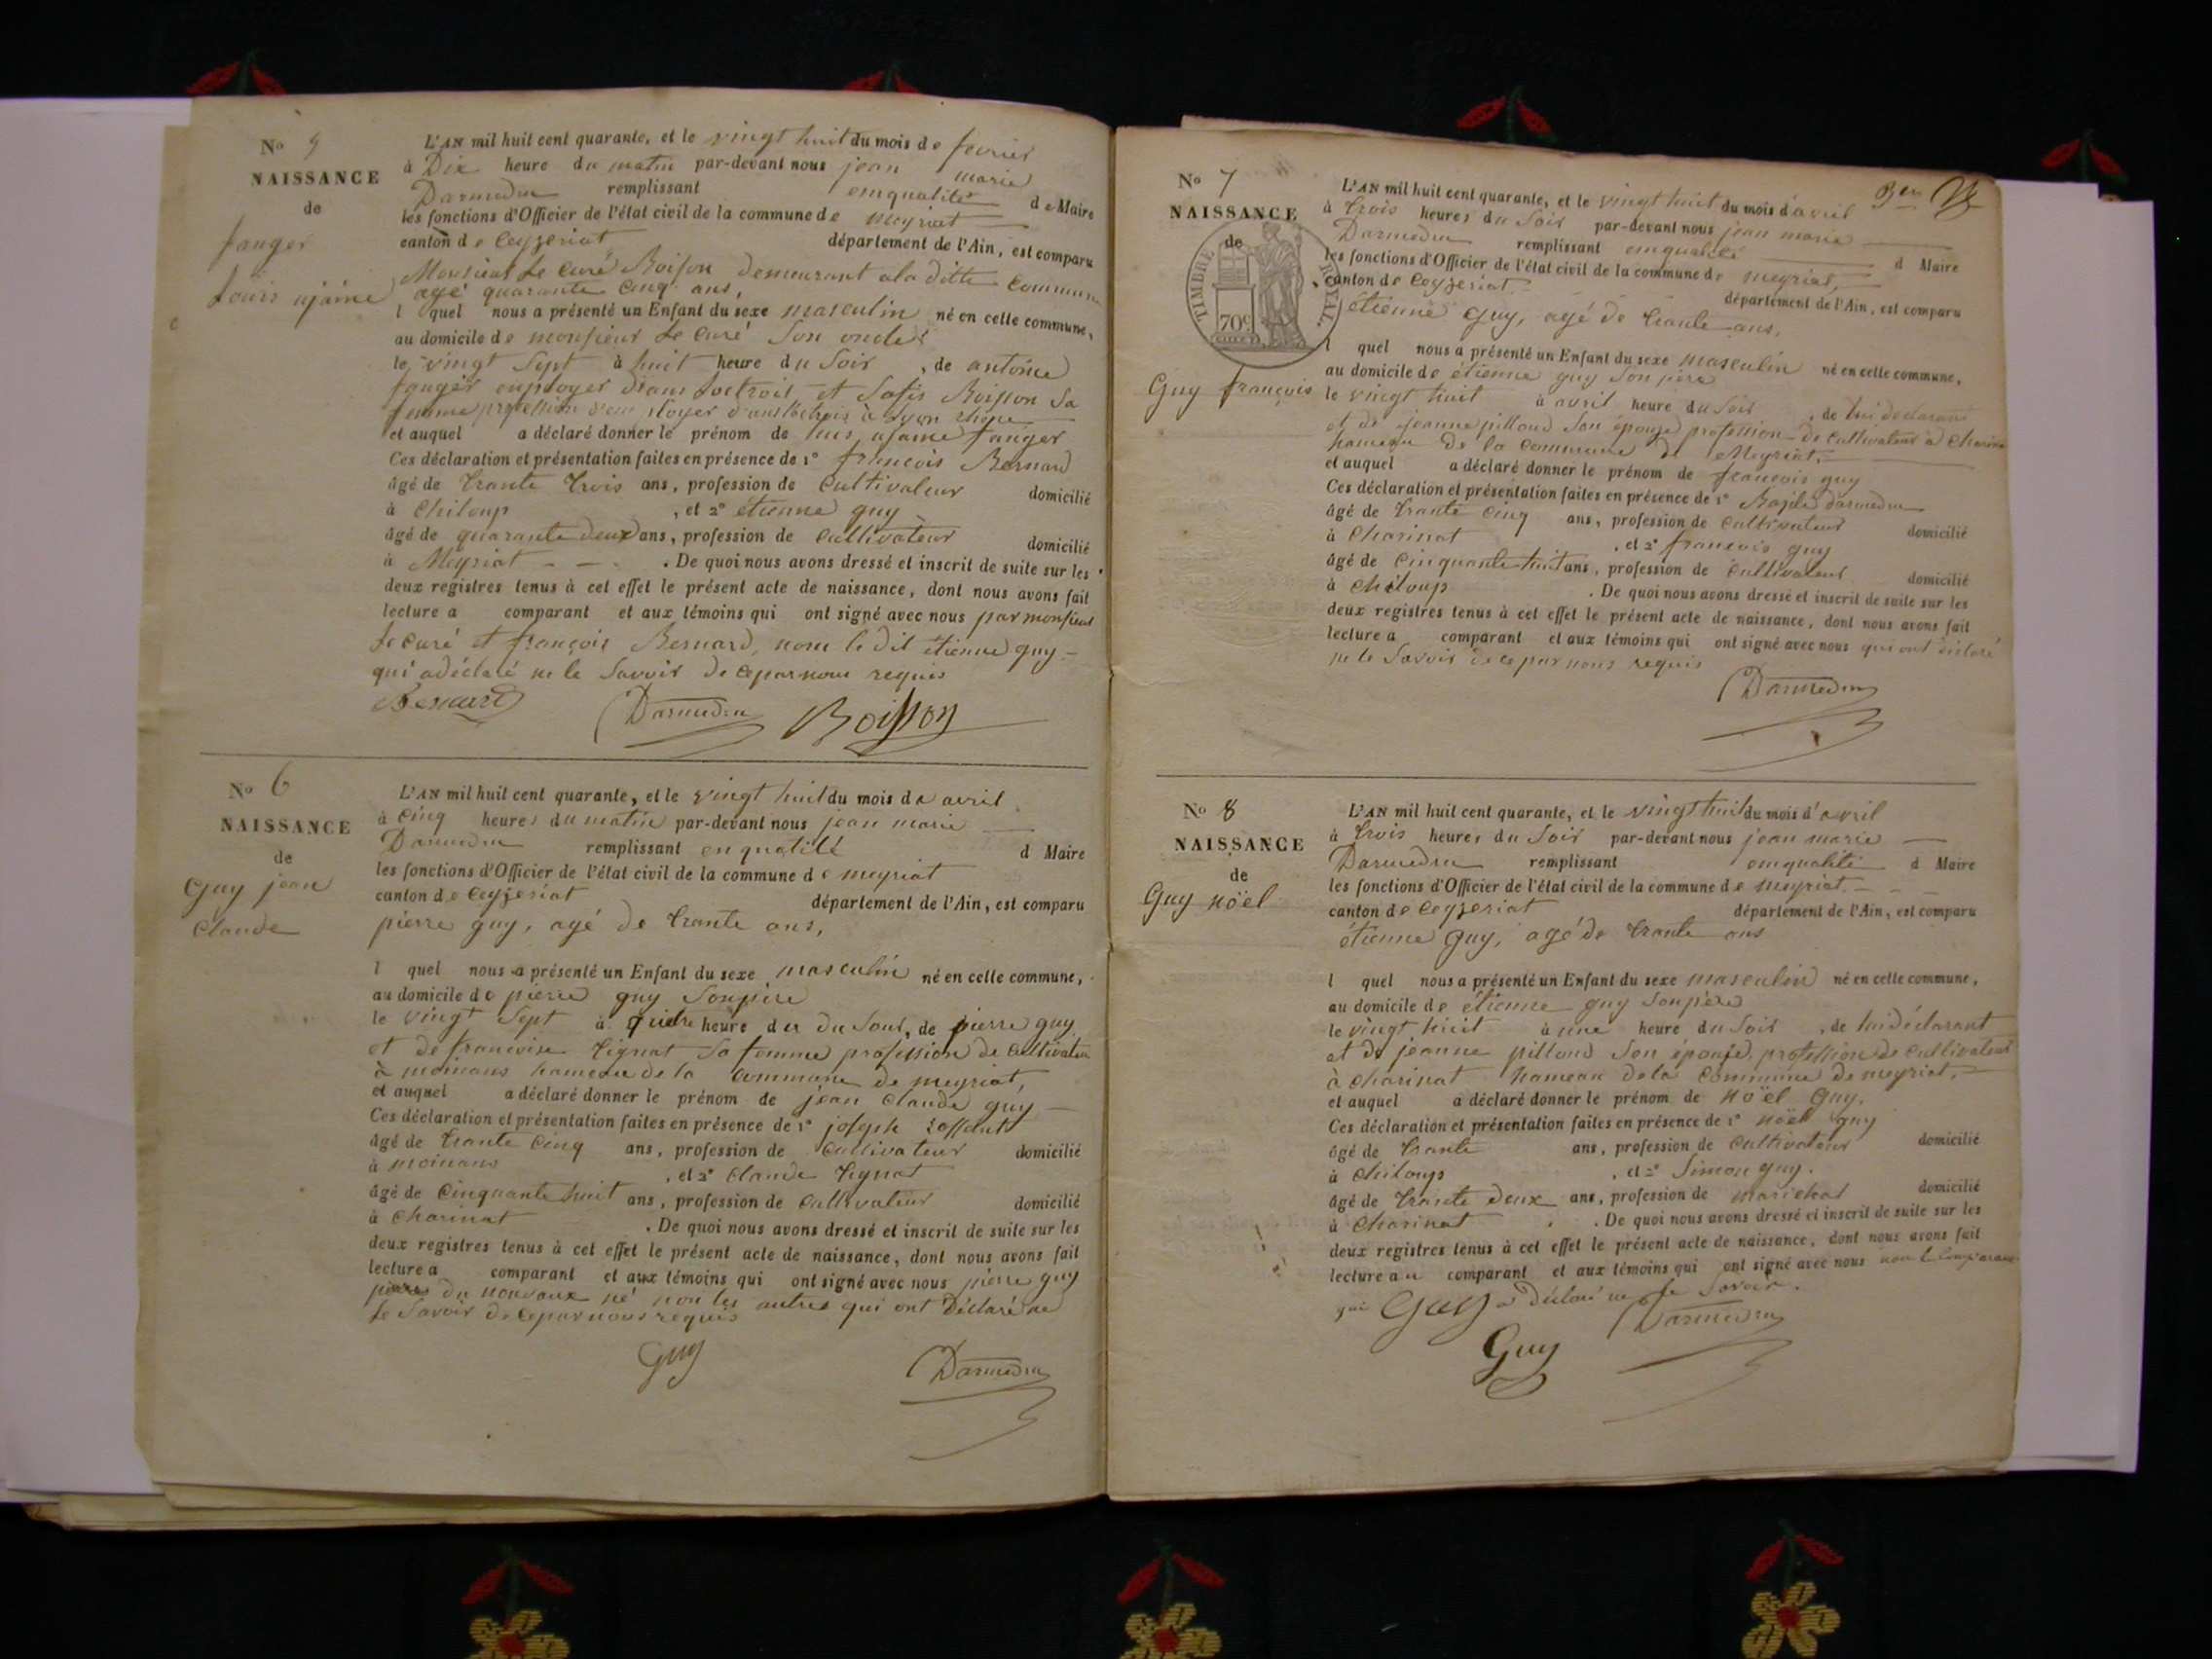 No 5
NAISSANCE
de
fauger
Louis ujaime
L'AN mil huit cent quarante, et le vingt huit du mois de fevrier
à Dix heure du matin par-devant nous jean marie
Darmedru remplissant emqualité de Maire
les fonctions d'Officier de l'état civil de la commune de meyriat
canton de Ceyzeriat département de l'Ain, est comparu
Monsieur Le Curé Boisson demeurant ala ditte Commune
agé quarante Cinq ans,
l quel nous a présenté un Enfant du sexe masculin né en celle commune,
au domicile de monsieur Le Curé Son oncle
le vingt Sept à huit heure du Soir , de antoine
fauger employer dans Loctroit et Boisson Sa
femme profession
et auquel a déclaré donner le prénom de ujaime fauger
Ces déclaration et présentation faites en présence de 1° françois Bernard
âgé de trante trois ans, profession de Cultivateur domicilié
à Chiloup , et 2° étienne guy
âgé de quarante deux ans, profession de Cultivateur domicilié
à Meyriat - - . De quoi nous avons dressé et inscrit de suite sur les
deux registres tenus à cet effet le présent acte de naissance, dont nous avons fait
lecture a comparant et aux témoins qui ont signé avec nous par monsieur
Le Curé et françois Bernard, nom le dit étienne guy -
qui adéclaré ne le Savoir de ceparnous requis
Bernard Darmedru Boisson
No 6
NAISSANCE
de
Guy jean
Claude
L'AN mil huit cent quarante, et le vingt huit du mois de avril
à Cinq heures du matin par-devant nous jean marie
Darmedru remplissant enqualité d Maire
les fonctions d'Officier de l'état civil de la commune de meyriat
canton de Ceyzeriat département de l'Ain, est comparu
pierre guy, agé de trante ans,
l quel nous a présenté un Enfant du sexe masculin né en celle commune,
au domicile de pierre guy Sonpère
le vingt Sept à heure du du Soir, de pierre guy
et de francoise tignat Sa femme profession de Cultivateur
à moinans hameau de la Commune de meyriat,
et auquel a déclaré donner le prénom de jean Claude guy
Ces déclaration et présentation faites en présence de 1° joseph
âgé de trante Cinq ans, profession de Cultivateur domicilié
à moinans , et 2° Claude tignat
âgé de Cinquante huit ans, profession de Cultivateur domicilié
à Charinat . De quoi nous avons dressé et inscrit de suite sur les
deux registres tenus à cet effet le présent acte de naissance, dont nous avons fait
lecture a comparant et aux témoins qui ont signé avec nous pierre guy
père du nouvaux né non les autres qui ont Déclaré ne
Le Savoir de ceparnous requis
Guy Darmedru
No 7
NAISSANCE
de
TIMBRE ROYAL.
70c
Guy françois
L'AN mil huit cent quarante, et le vingt huit du mois d'avril
à trois heures du Soir par-devant nous jean marie
Darmedru remplissant emqualité d Maire
les fonctions d'Officier de l'état civil de la commune de meyriat,
canton de Ceyzeriat département de l'Ain, est comparu
étienne guy, agé de trante ans,
l quel nous a présenté un Enfant du sexe masculin né en celle commune,
au domicile de étienne guy Son père
le vingt huit à avril heure du Soir , de lui déclarant
et de jeanne pilloud Son épouse profession de Cultivateur à Charinat
hameau de la Commune de Meyriat.
et auquel a déclaré donner le prénom de françois guy
Ces déclaration et présentation faites en présence de 1° Bazile darmedru
âgé de trante Cinq ans, profession de Cultivateur domicilié
à Charinat , et 2° francois guy
âgé de Cinquante huit ans, profession de Cultivateur domicilié
à Chiloup . De quoi nous avons dressé et inscrit de suite sur les
deux registres tenus à cet effet le présent acte de naissance, dont nous avons fait
lecture a comparant et aux témoins qui ont signé avec nous qui ont déclaré
ne le Savoir de ce par nous requis
Darmedru
No 8
NAISSANCE
de
Guy noël
L'AN mil huit cent quarante, et le vingt huit du mois d'avril
à trois heures du Soir par-devant nous jean marie
Darmedru remplissant emqualité d Maire
les fonctions d'Officier de l'état civil de la commune de meyriat - -
canton de Ceyzeriat département de l'Ain, est comparu
étienne guy, agé de trante ans
l quel nous a présenté un Enfant du sexe masculin né en celle commune,
au domicile de étienne guy Sonpère
le vingt huit à une heure du Soir , de lui déclarant
et de jeanne pilloud Son épouse, profession de Cultivateur
à Charinat hameau de la Commune de meyriat.
et auquel a déclaré donner le prénom de noël Guy.
Ces déclaration et présentation faites en présence de 1° noël guy
âgé de trante ans, profession de Cultivateur domicilié
à Chiloup , et 2° Simeon guy.
âgé de trante deux ans, profession de marichal domicilié
à Charinat . De quoi nous avons dressé et inscrit de suite sur les
deux registres tenus à cet effet le présent acte de naissance, dont nous avons fait
lecture au comparant et aux témoins qui ont signé avec nous non le Comparant
qui Guy a déclaré ne le Savoir.
Guy Darmedru